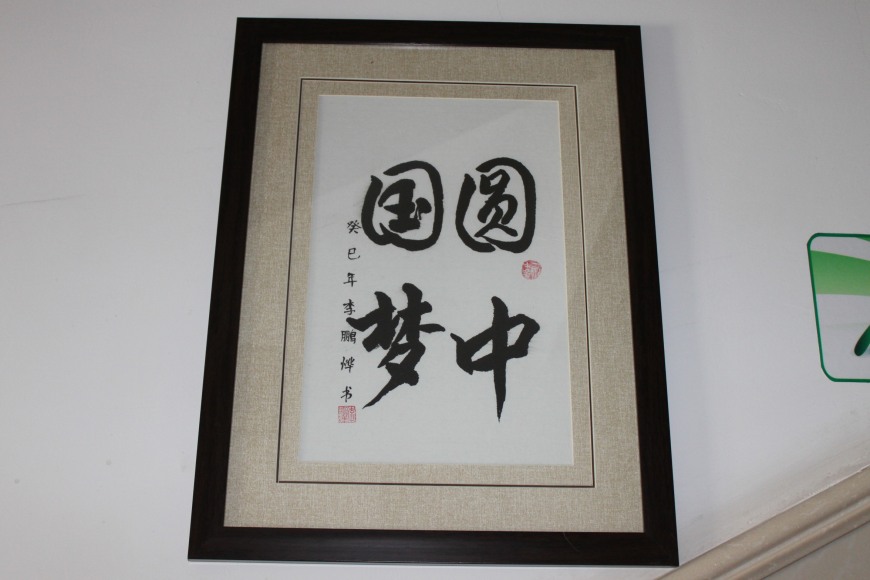 圆中
国梦
癸巳年李鹏烨书